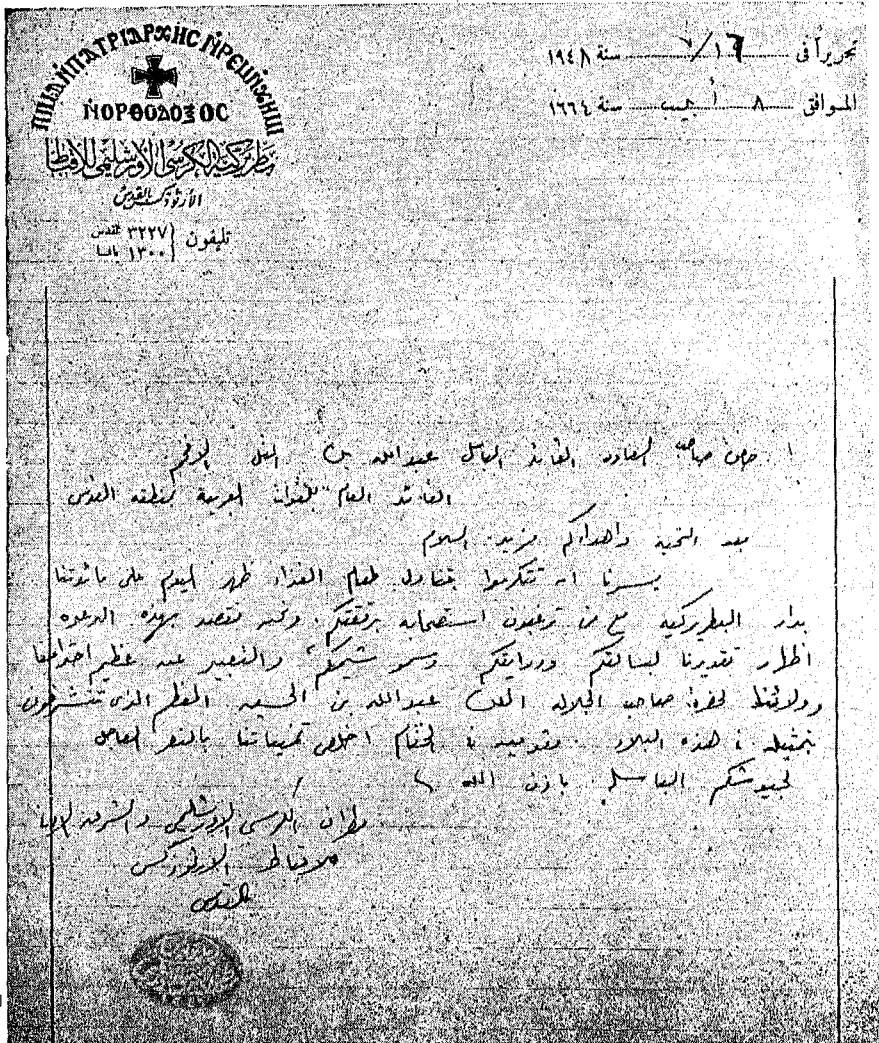 ⲠⲒⲘⲀⲚⲠⲀⲦⲢⲒⲀⲢⲬⲎⲤ ⲚⲢⲈⲘⲚⲬⲎⲘⲒ
ⲚⲞⲢⲐⲞⲆⲞⲜⲞⲤ
بطريركية الكرسي الأورشليمي للأقباط
الأرثوذكس بالقدس
تليفون ٣٢٢٧ القدس
١٣٠٠ يافا
تحريراً فى ١٦/٧ سنة ١٩٤٨
الموافق ٨ أبيب سنة ١٦٦٤
صاحب السعادة القائد الباسل عبدالله بك التل الافخم
القائد العام للقوات العربية بمنطقة القدس
بعد التحية واهدائكم مزيد السلام
يسرنا ان تتكرموا بتناول طعام الغداء ظهر اليوم على مائدتنا
بدار البطريركيه مع من ترغبون استصحابه برفقتكم. ونحن نقصد بهذه الدعوه
اظهار تقديرنا لبسالتكم ودرايتكم وسمو شيمكم، والتعبير عن عظيم احترامنا
وولائنا لحضرة صاحب الجلاله الملك عبدالله بن الحسين المعظم الذى تتشرفون
بتمثيله فى هذه البلاد. مقدمين فى الختام اخلص تمنياتنا بالنصر العاجل
لجيوشكم الباسله باذن الله
مطران الكرسي الاورشليمي والشرق الادنى
للاقباط الارثوذكس
بالقدس